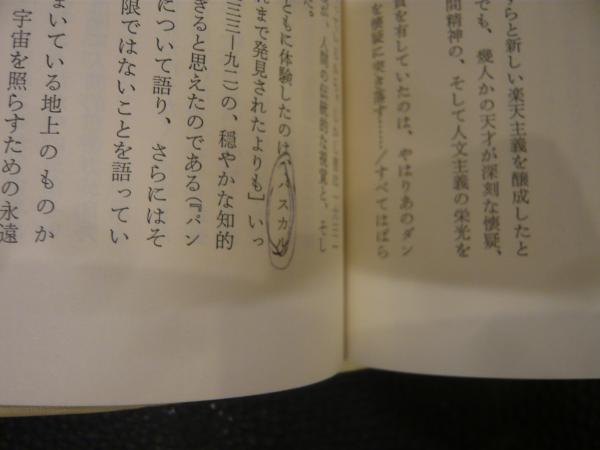 すらと新しい楽天主義を醸成したと
でも、幾人かの天才が深刻な懐疑、
間精神の、そして人文主義の栄光を
を有していたのは、やはりあのダン
を懐疑に突き落す……／すべてはばら
人間の伝統的な視覚と、そし
ともに体験したのは、パスカル
れまで発見されたよりも］いっ
三三―九二）の、穏やかな知的
きると思えたのである（『パン
について語り、さらにはそ
限ではないことを語ってい
まいている地上のものか
宇宙を照らすための永遠